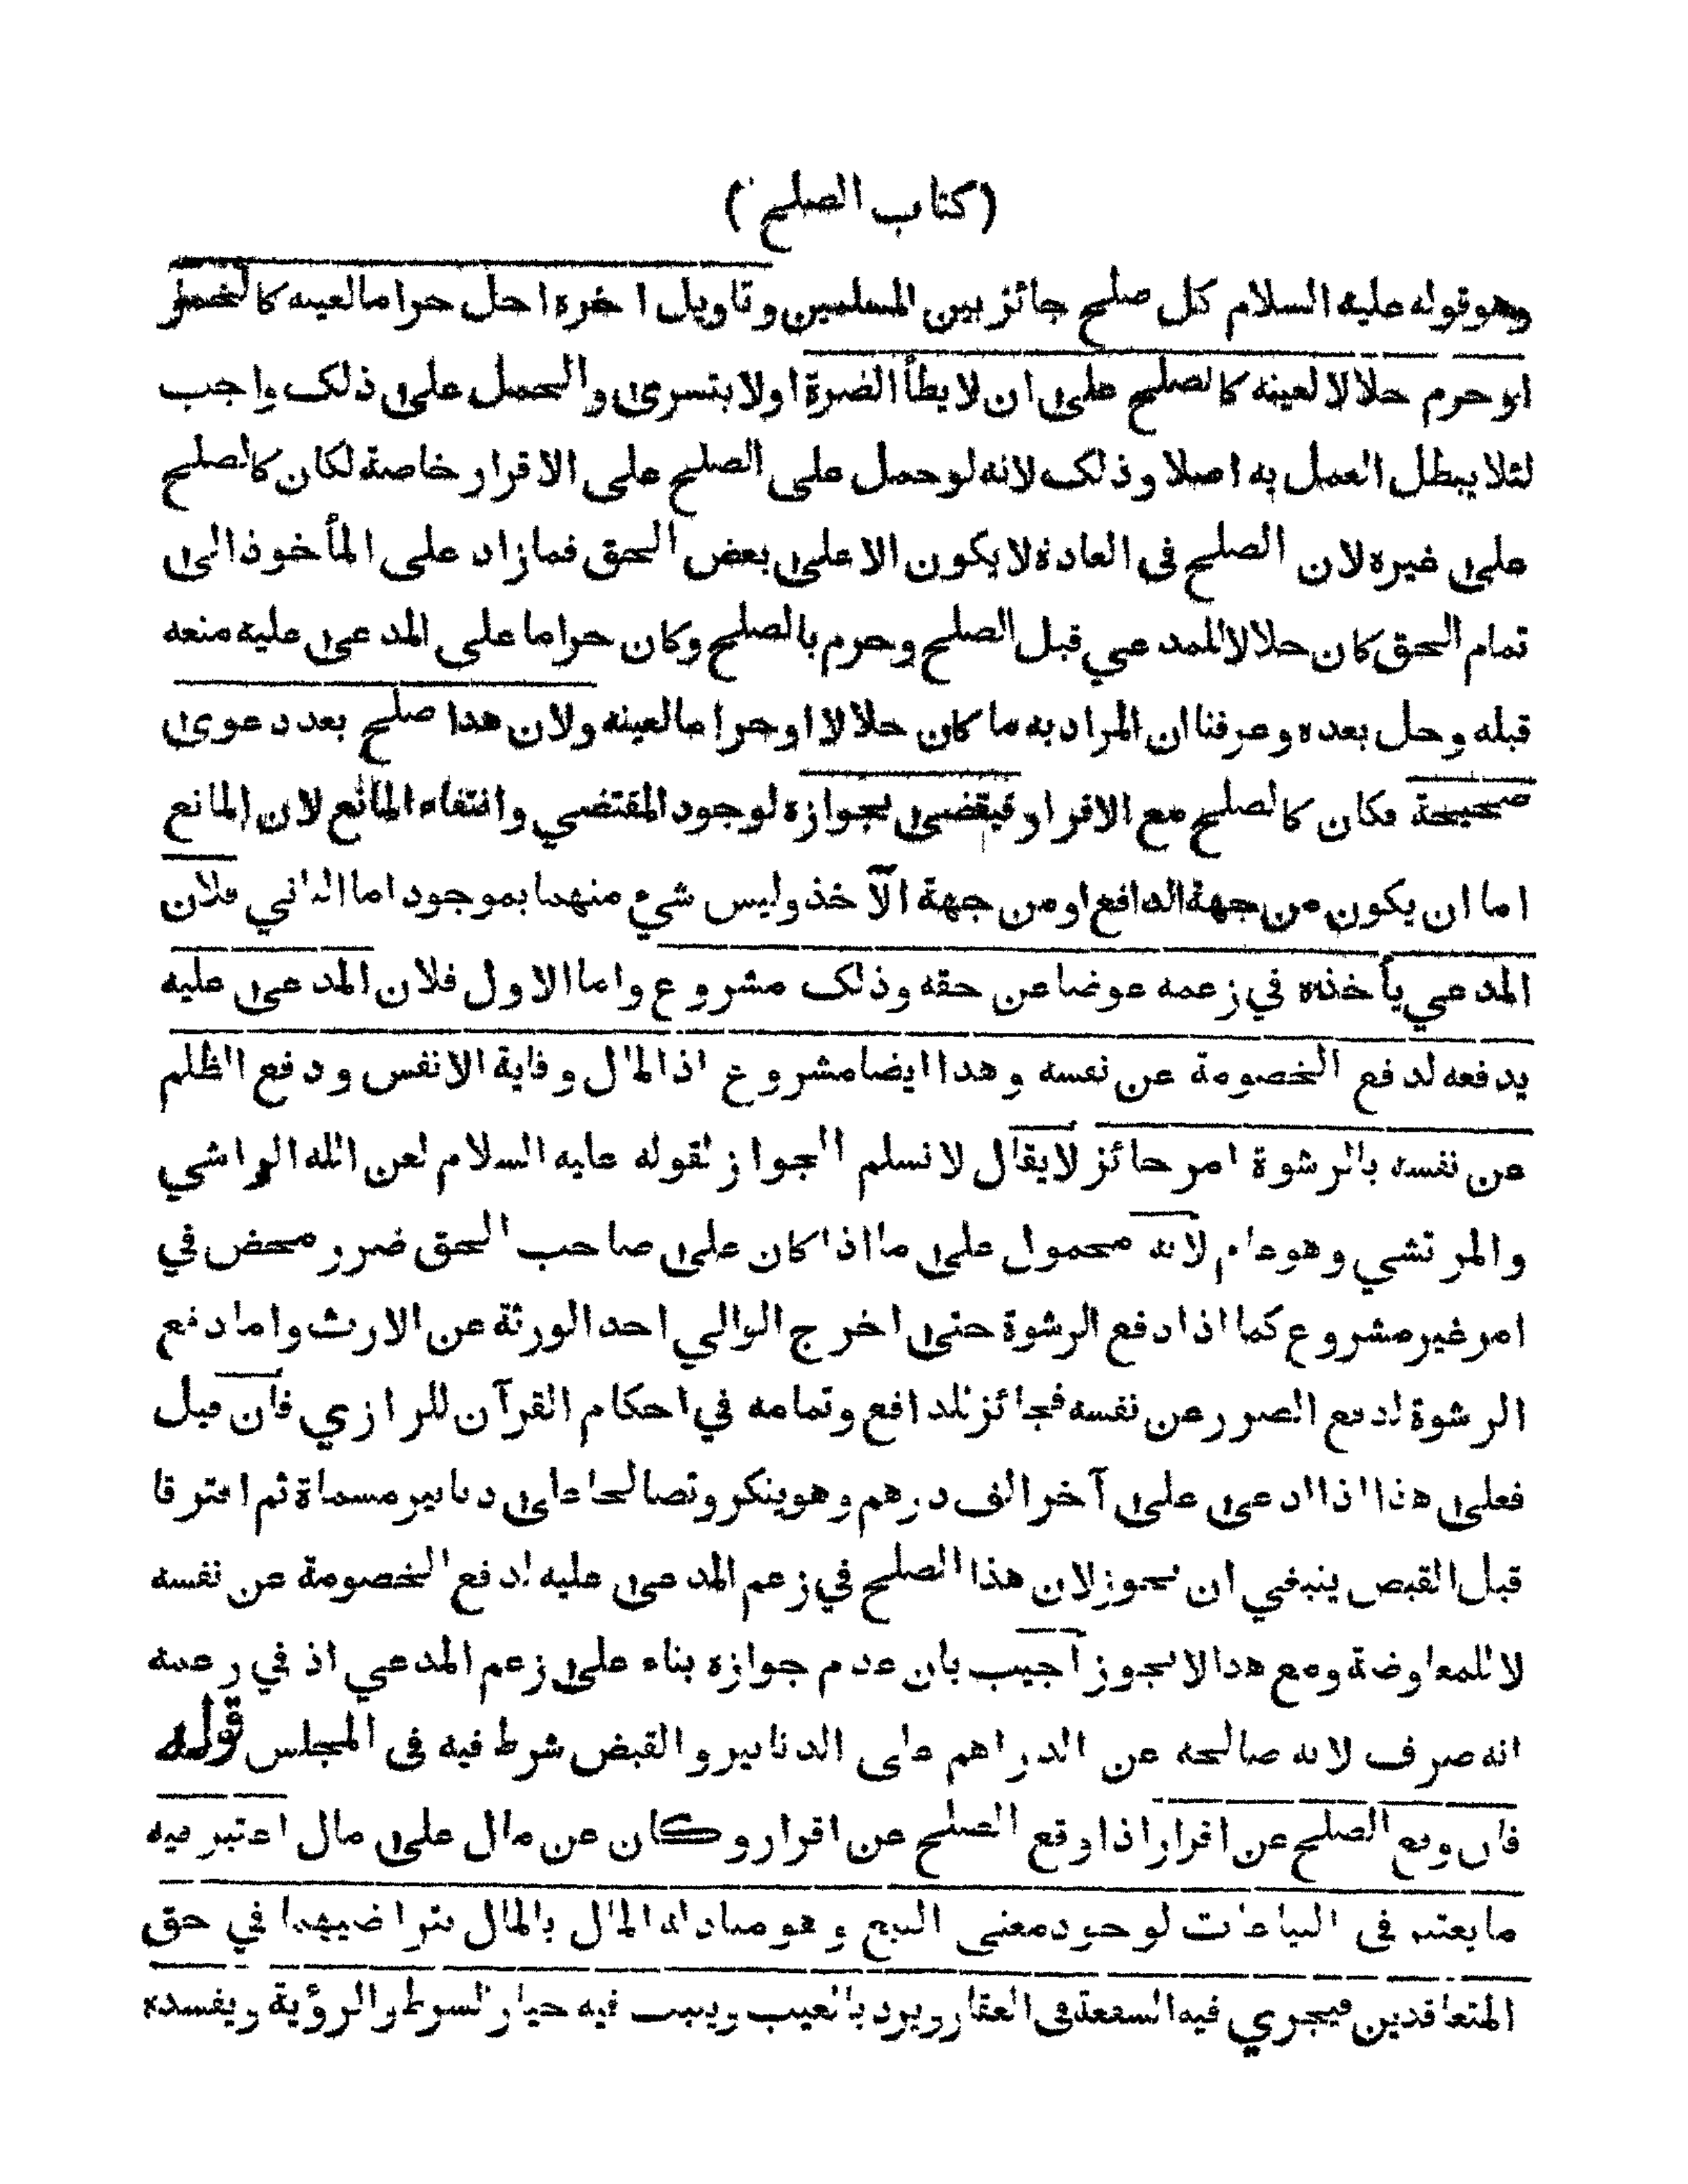 (كتاب الصلح)
وهو قوله عليه السلام كل صلح جائز بين المسلمين وتاويل اخره احل حراما لعينه كالخمر
او حرم حلالا لعينه كالصلح على ان لا يطأ الضرة او لا يتسرى والحمل على ذلك واجب
لئلا يبطل العمل به اصلا وذلك لانه لو حمل على الصلح على الاقرار خاصة لكان كالصلح
على غيره لان الصلح فى العادة لا يكون الا على بعض الحق فما زاد على المأخوذ الى
تمام الحق كان حلالا للمدعي قبل الصلح وحرم بالصلح وكان حراما على المدعى عليه منعه
قبله وحل بعده وعرفنا ان المراد به ما كان حلالا او حراما لعينه ولان هذا صلح بعد دعوى
صحيحة فكان كالصلح مع الاقرار فيقضى بجوازه لوجود المقتضي وانتفاء المانع لان المانع
اما ان يكون من جهة الدافع او من جهة الآخذ وليس شيء منهما بموجود اما الثاني فلان
المدعي يأخذه في زعمه عوضا عن حقه وذلك مشروع واما الاول فلان المدعى عليه
يدفعه لدفع الخصومة عن نفسه وهذا ايضا مشروع اذ المال وقاية الانفس ودفع الظلم
عن نفسه بالرشوة امر جائز لايقال لا نسلم الجواز لقوله عليه السلام لعن الله الراشي
والمرتشي وهو عام لانه محمول على ما اذا كان على صاحب الحق ضرر محض في
امر غير مشروع كما اذا دفع الرشوة حتى اخرج الوالي احد الورثة عن الارث واما دفع
الرشوة لدفع الضرر عن نفسه فجائز للدافع وتمامه في احكام القرآن للرازي فان قيل
فعلى هذا اذا ادعى على آخر الف درهم وهو ينكر وتصالحا على دنانير مسماة ثم افترقا
قبل القبض ينبغي ان يجوز لان هذا الصلح في زعم المدعى عليه لدفع الخصومة عن نفسه
لا للمعاوضة ومع هذا لا يجوز أجيب بان عدم جوازه بناء على زعم المدعي اذ في زعمه
انه صرف لانه صالحه عن الدراهم على الدنانير والقبض شرط فيه فى المجلس قوله
فان وقع الصلح عن اقرار اذا وقع الصلح عن اقرار وكان عن مال على مال اعتبر فيه
ما يعتبر فى البياعات لوجود معنى البيع وهو مبادلة المال بالمال بتراضيهما في حق
المتعاقدين فيجري فيه الشفعة فى العقار ويرد بالعيب ويثبت فيه خيار الشرط والرؤية ويفسده